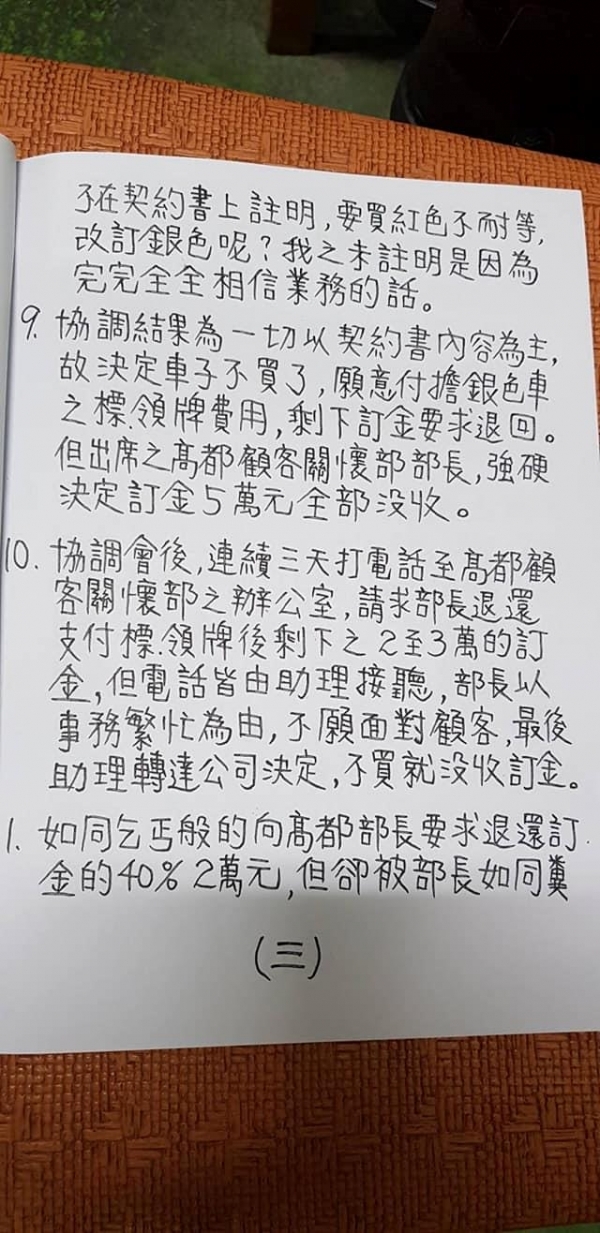 不在契約書上註明,要買紅色不耐等,
改訂銀色呢?我之未註明是因為
完完全全相信業務的話。
9. 協調結果為一切以契約書內容為主,
故決定車子不買了,願意付擔銀色車
之標.領牌費用,剩下訂金要求退回。
但出席之高都顧客關懷部部長,強硬
決定訂金5萬元全部没收。
10. 協調會後,連續三天打電話至高都顧
客關懷部之辦公室,請求部長退還
支付標.領牌後剩下之2至3萬的訂
金,但電話皆由助理接聽,部長以
事務繁忙為由,不願面對顧客,最後
助理轉達公司決定,不買就没收訂金。
1. 如同乞丐般的向高都部長要求退還訂
金的40% 2萬元,但卻被部長如同糞
(三)